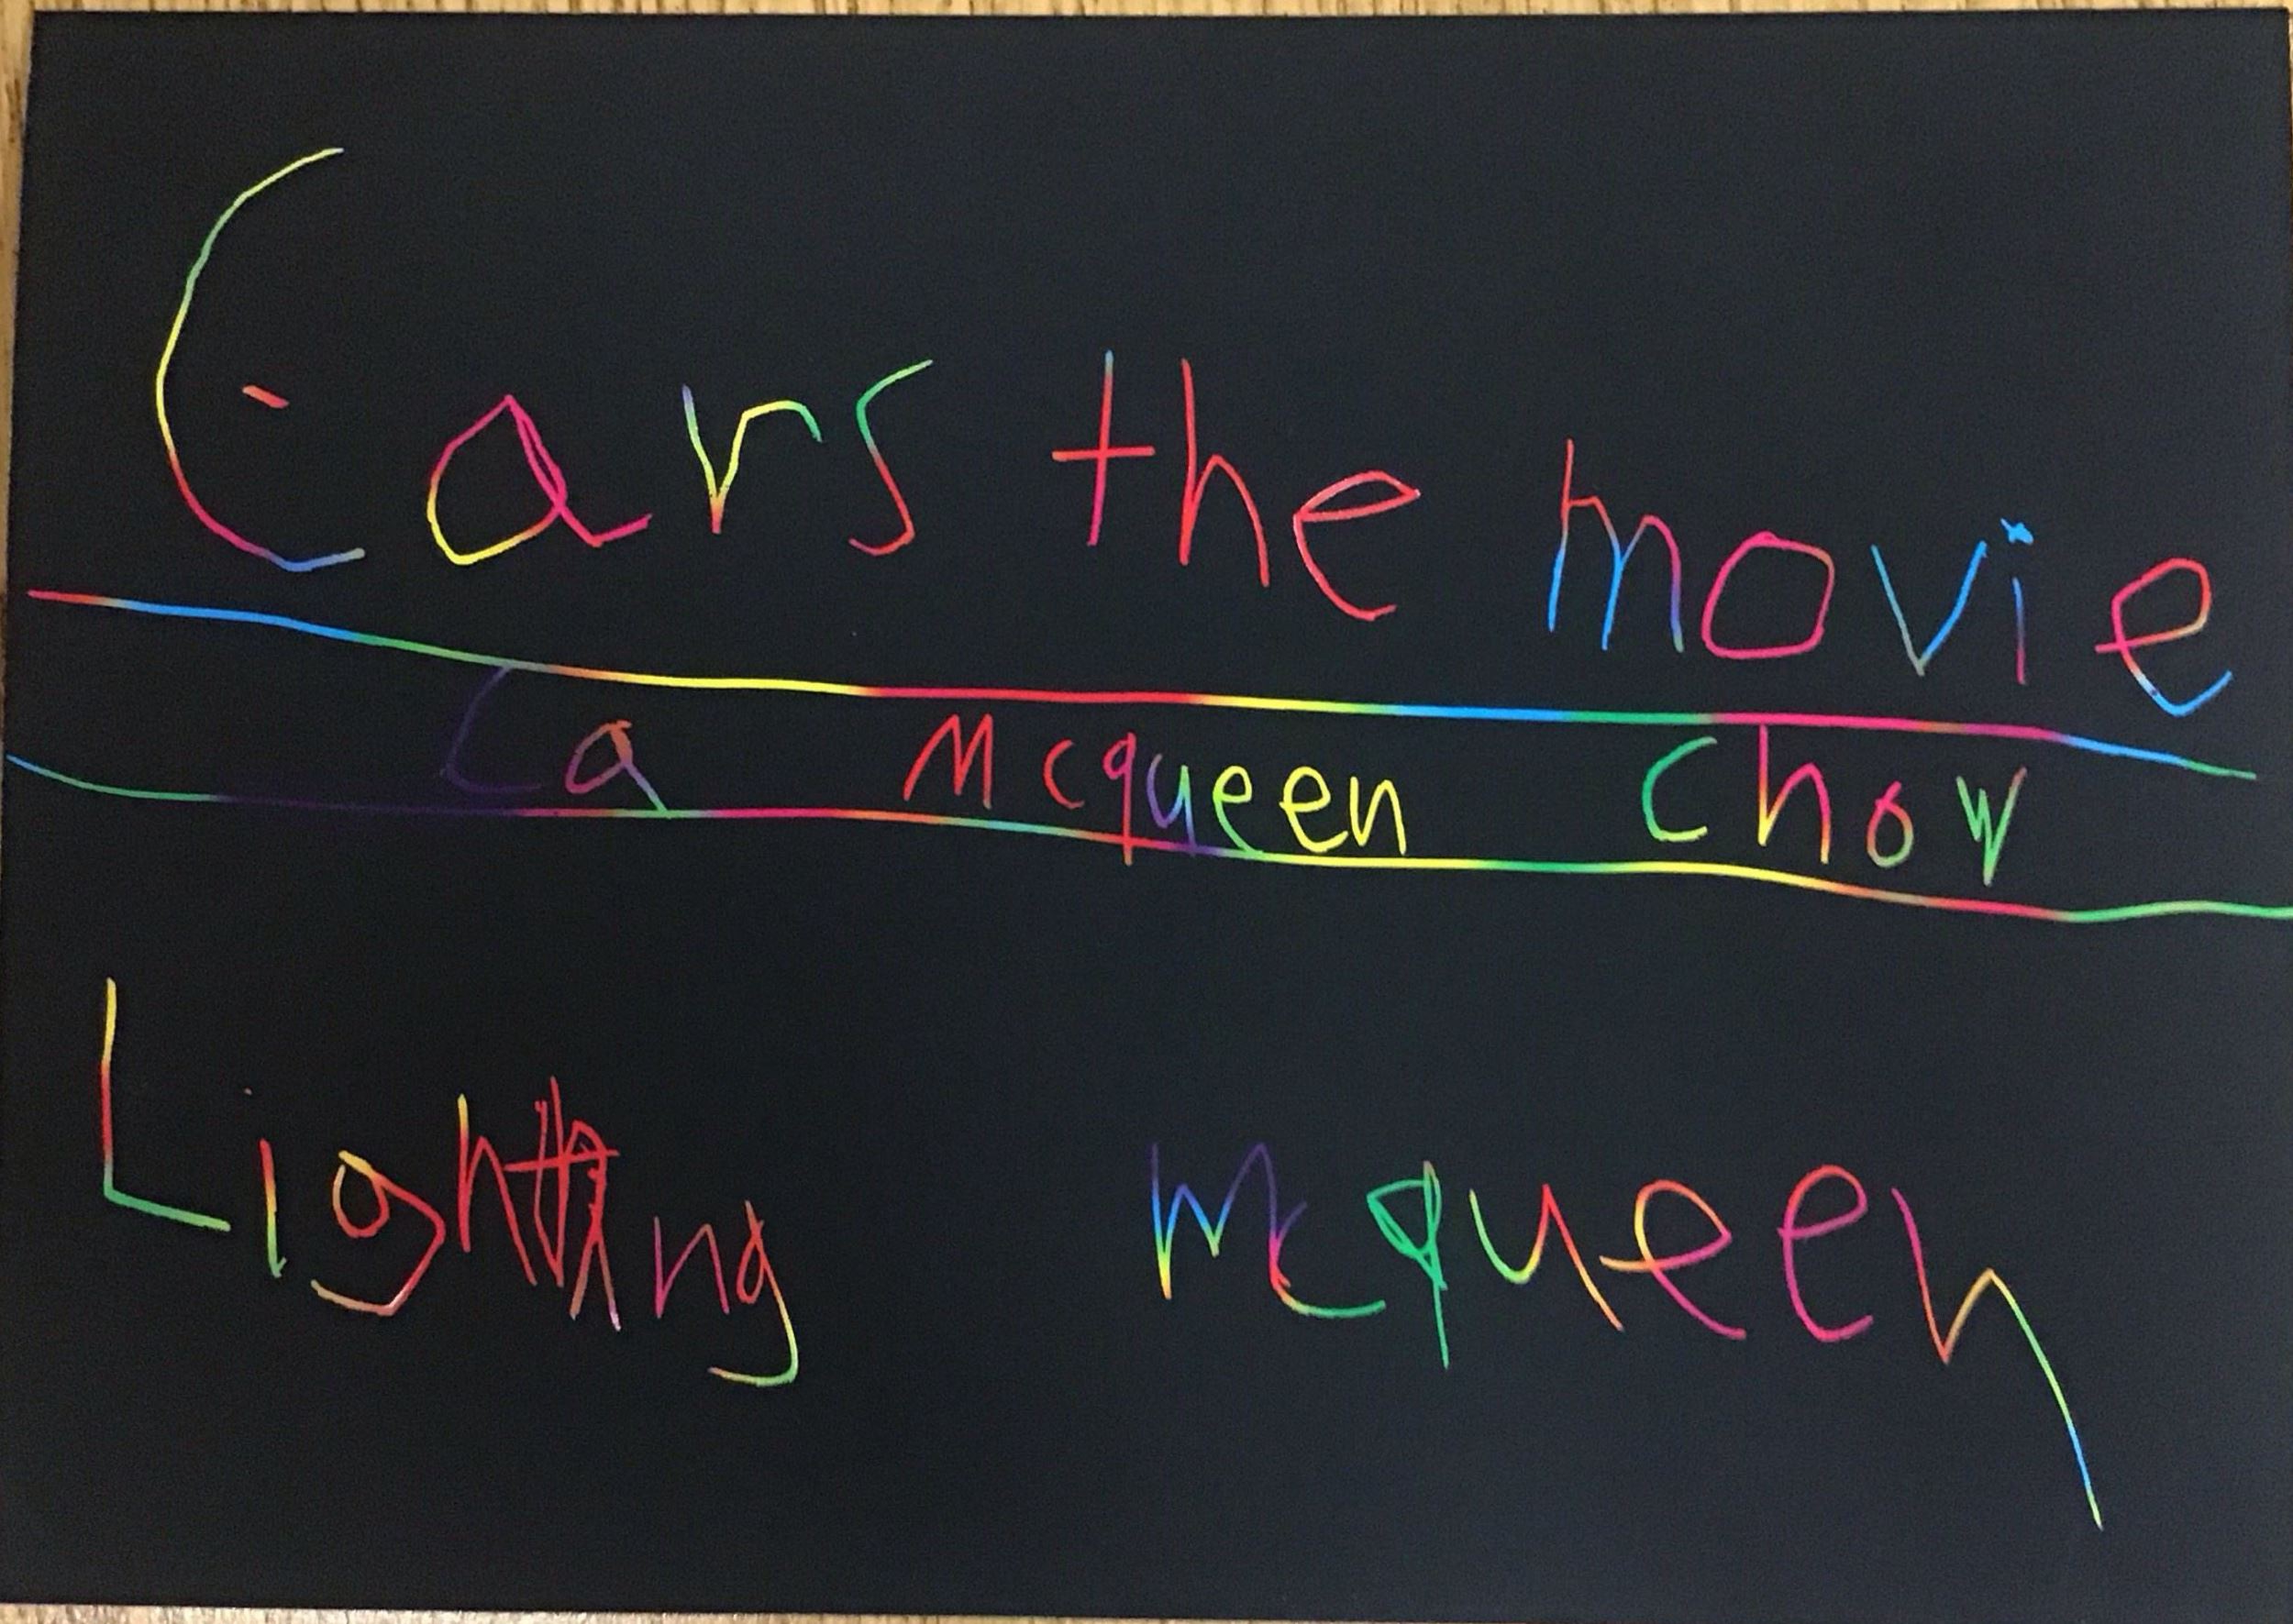 Cars the movie
Ca Mcqueen Chow
Lighting mcqueen